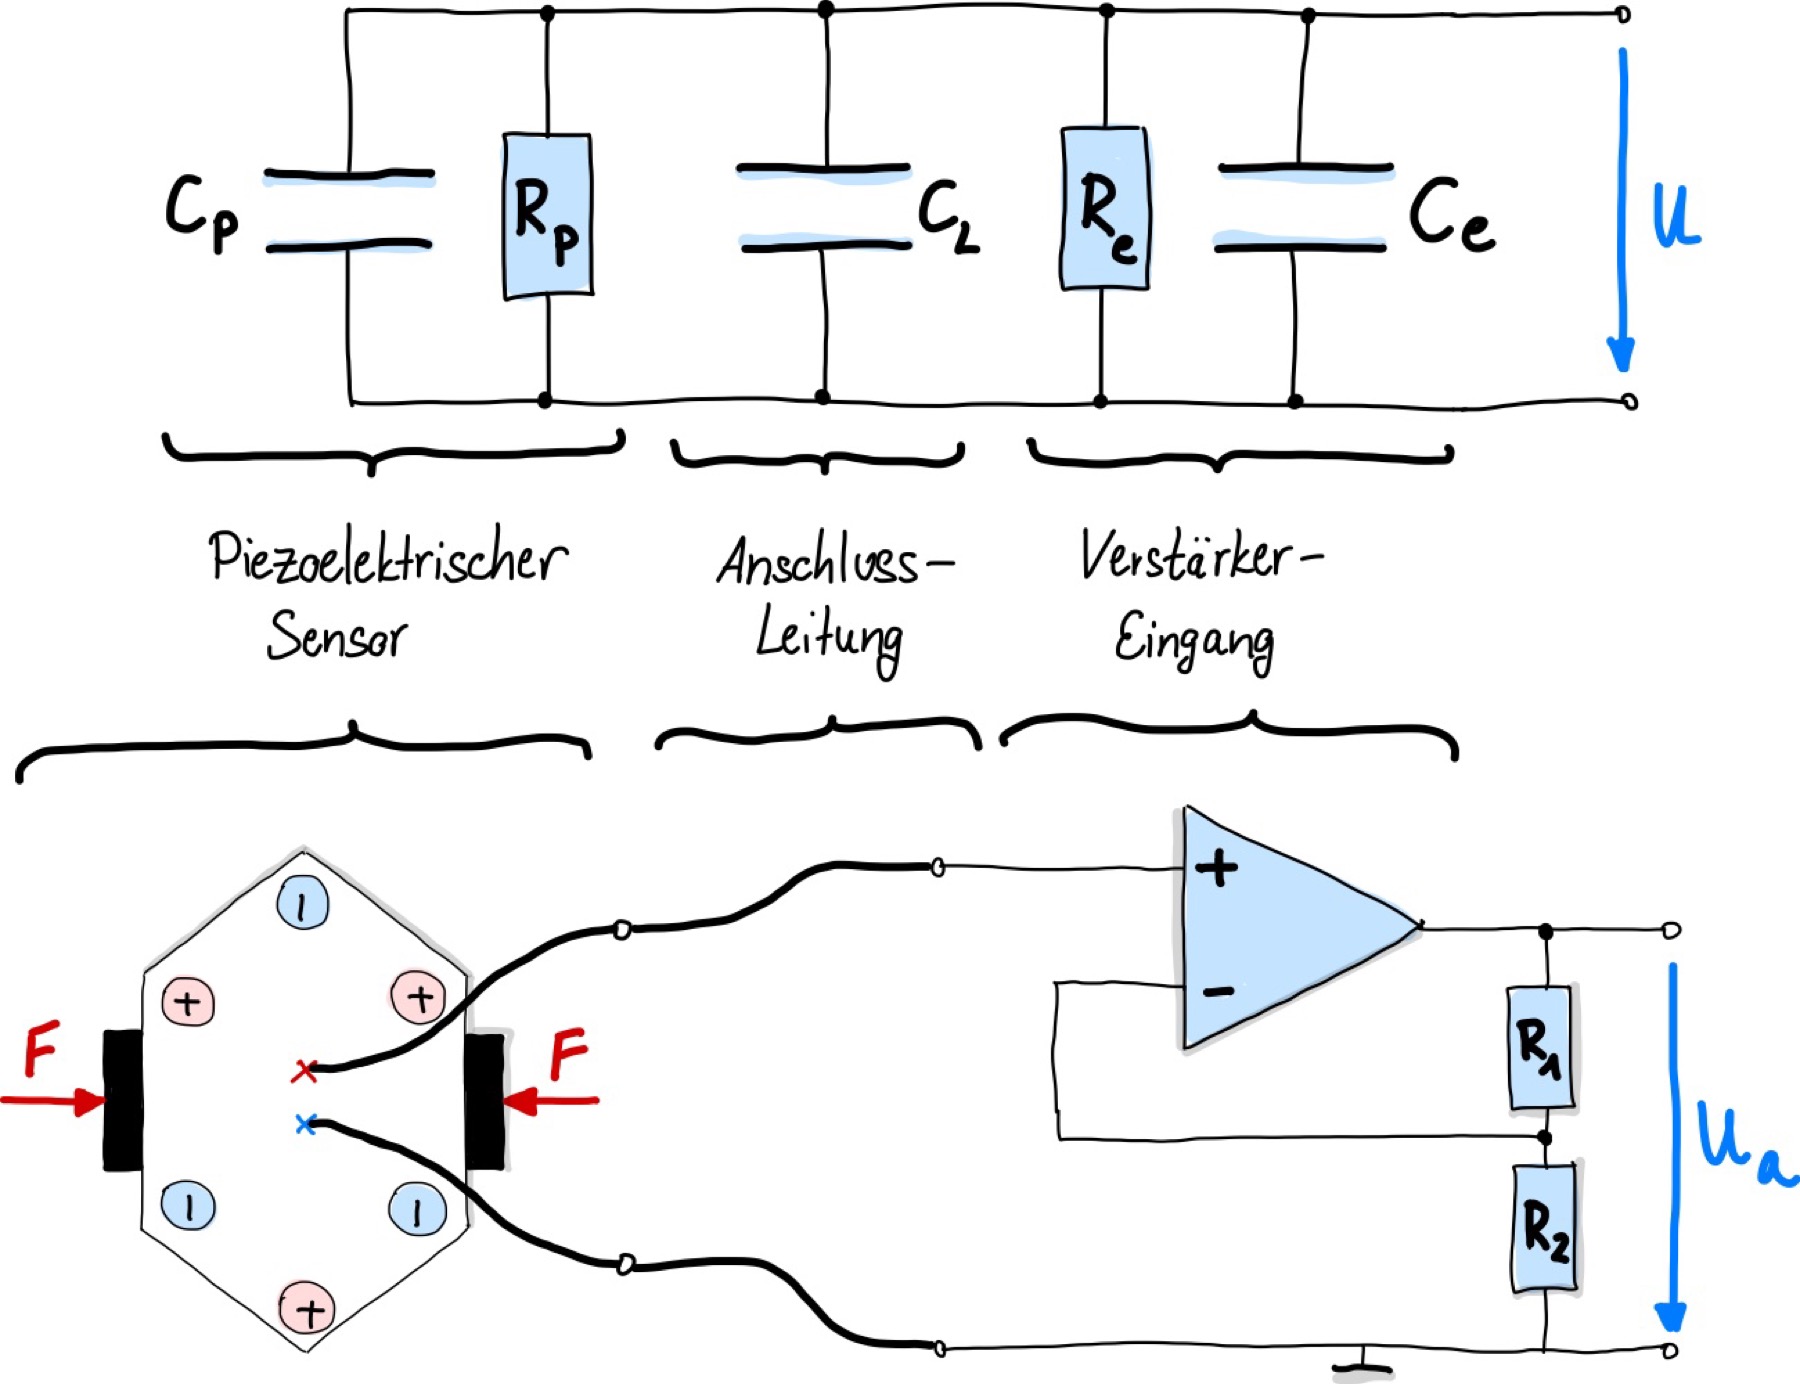 Cp Rp CL Re Ce U
Piezoelektrischer
Sensor
Anschluss-
Leitung
Verstärker-
Eingang
− + −
+ +
F F
R1
Ua
− −
R2
+